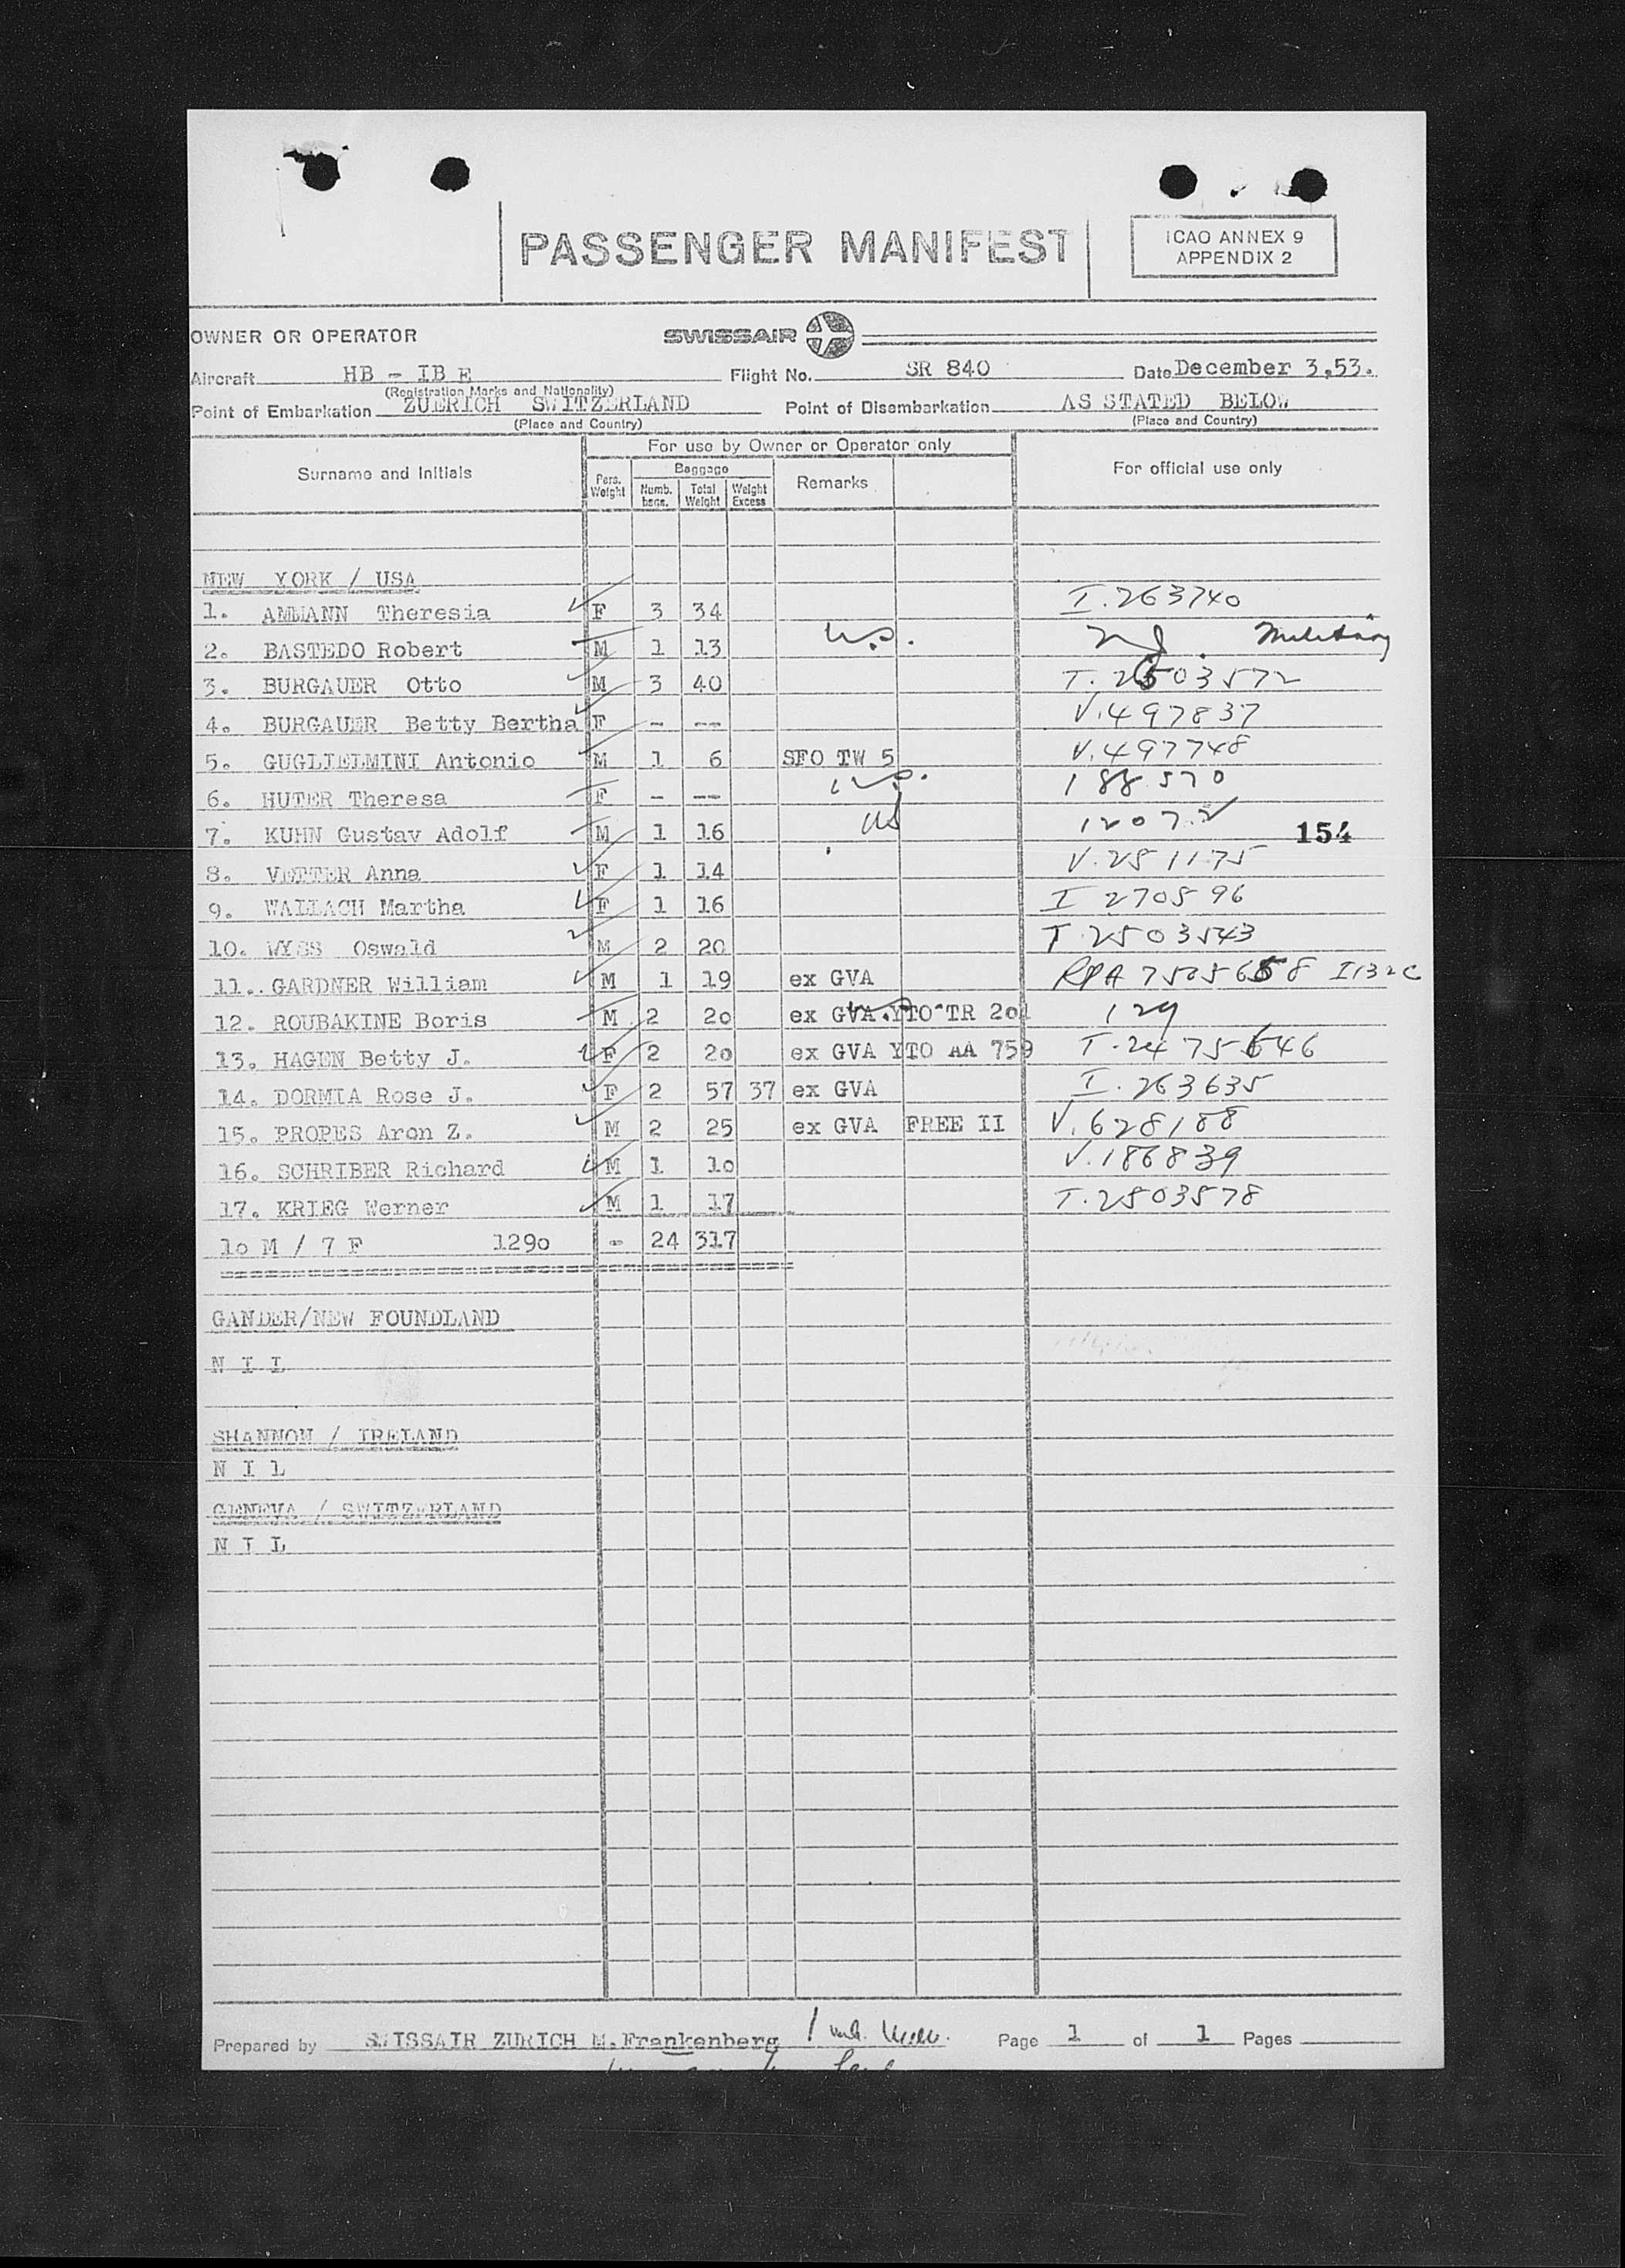 PASSENGER MANIFEST
ICAO ANNEX 9
APPENDIX 2
OWNER OR OPERATOR SWISSAIR
Aircraft HB - IB E Flight No. SR 840 Date December 3,53.
(Registration Marks and Nationality)
Point of Embarkation ZUERICH SWITZERLAND Point of Disembarkation AS STATED BELOW
(Place and Country) (Place and Country)
For use by Owner or Operator only
Surname and Initials Pers. Weight Baggage Numb. bags. Total Weight Weight Excess Remarks For official use only
NEW YORK / USA
1. AMMANN Theresia F 3 34 I.263740
2. BASTEDO Robert M 1 13 U.S. Military
3. BURGAUER Otto M 3 40 T. 2503572
4. BURGAUER Betty Bertha F - -- V.497837
5. GUGLIELMINI Antonio M 1 6 SFO TW 5 V.497748
6. HUTER Theresa F - -- U.S. 188570
7. KUHN Gustav Adolf M 1 16 154
8. VETTER Anna F 1 14 V.281175
9. WALLACH Martha F 1 16 I 270596
10. WYSS Oswald M 2 20 T.2503543
11. GARDNER William M 1 19 ex GVA
12. ROUBAKINE Boris M 2 20 ex GVA YTO TR 201 129
13. HAGEN Betty J. F 2 20 ex GVA YTO AA 759 T.2475646
14. DORMIA Rose J. F 2 57 37 ex GVA I.263635
15. PROPES Aron Z. M 2 25 ex GVA FREE II V.628188
16. SCHRIBER Richard M 1 10 V.186839
17. KRIEG Werner M 1 17 T.2503578
10 M / 7 F 1290 - 24 317
GANDER/NEW FOUNDLAND
N I L
SHANNON / IRELAND
N I L
GENEVA / SWITZERLAND
N I L
Prepared by SWISSAIR ZURICH M.Frankenberg Page 1 of 1 Pages